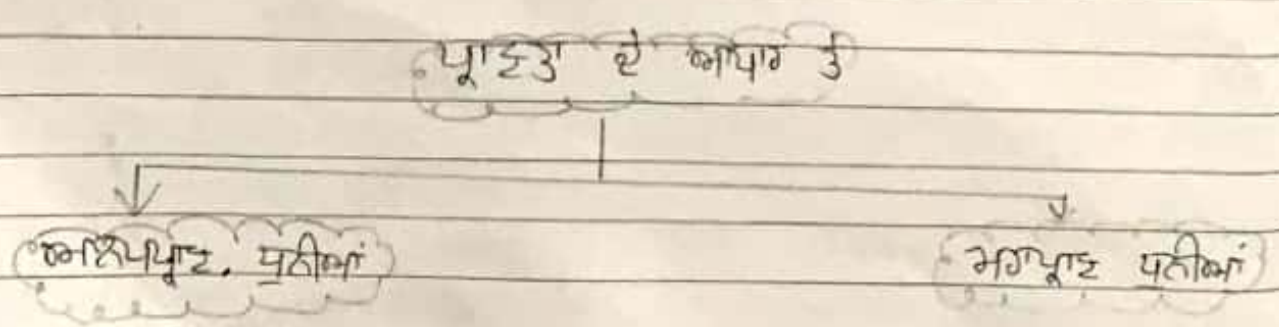 ਪ੍ਰਾਣਤਾ ਦੇ ਆਧਾਰ ਤੇ
ਅਲਪਪ੍ਰਾਣ. ਧੁਨੀਆਂ
ਮਹਾਪ੍ਰਾਣ ਧੁਨੀਆਂ